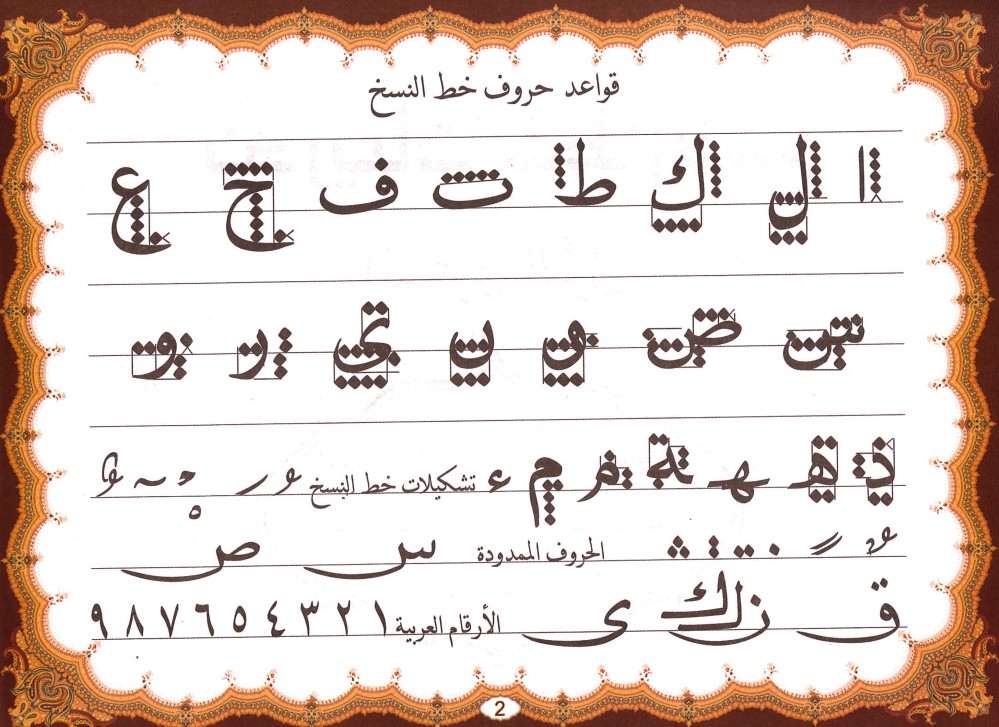 قواعد حروف خط النسخ
ا ل ك ط ت ف ح ع
س ص ق ن ي ر و
د ه ـهـ ـة م م ء تشكيلات خط النسخ
الحروف الممدودة س ص
ق ك ى الأرقام العربية ١ ٢ ٣ ٤ ٥ ٦ ٧ ٨ ٩
2